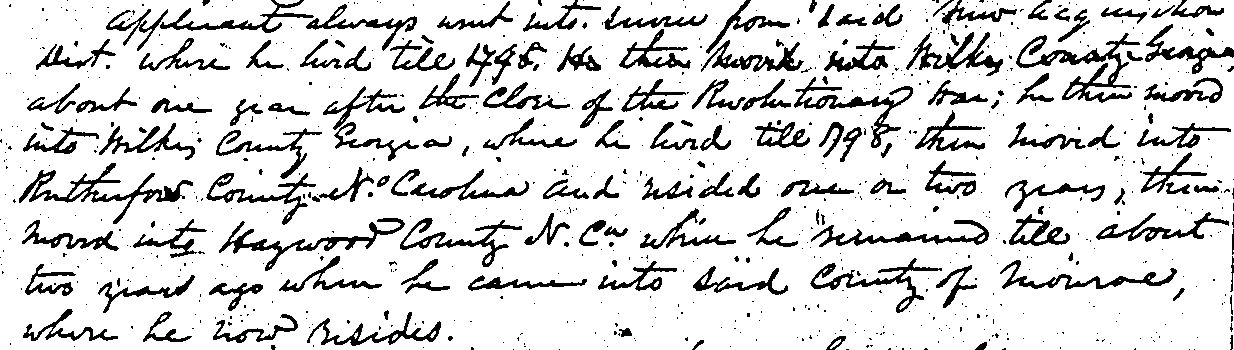 Applicant always went into service from said New Acquisition
Dist. where he lived till 1798. He then moved into Wilkes County Georgia,
about one year after the Close of the Revolutionary War; he then moved
into Wilkes County Georgia, where he lived till 1798, then moved into
Rutherford County N.o Carolina and resided one or two years, then
moved into Haywood County N. Ca where he remained till about
two years ago when he came into said County of Monroe,
where he now resides.